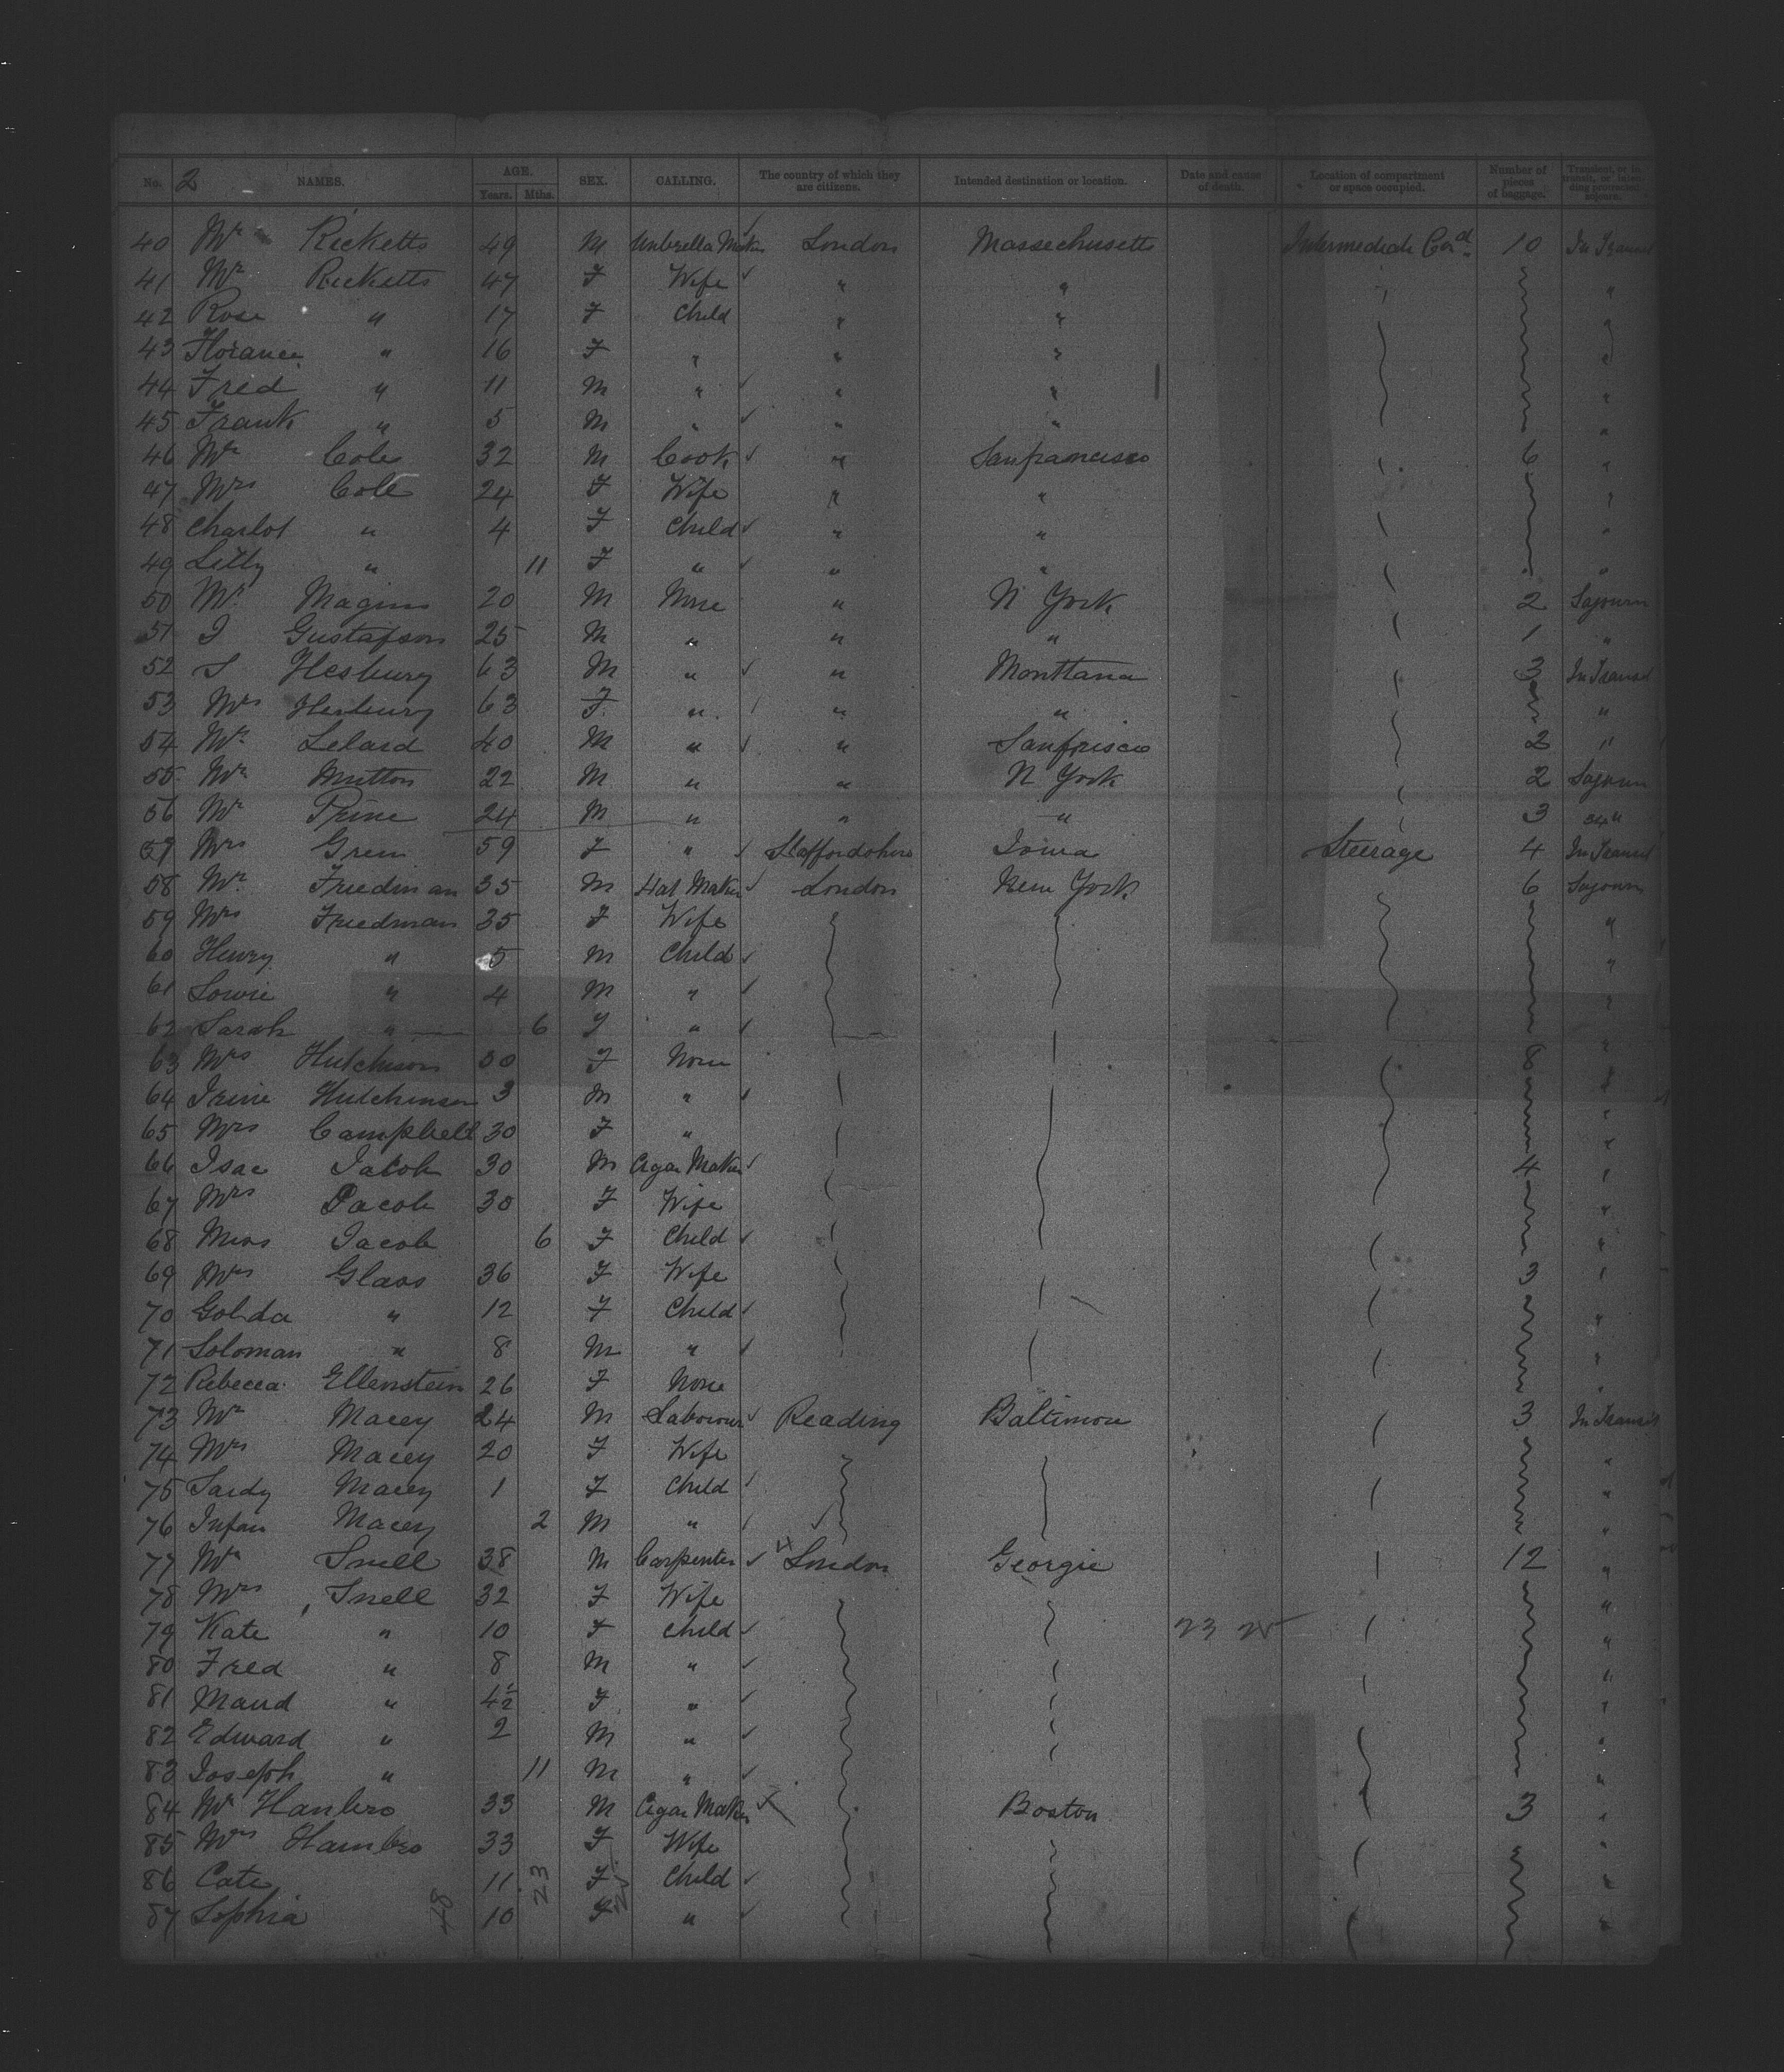 No. 2 NAMES. AGE. Years. Mths. SEX. CALLING. The country of which they are citizens. Intended destination or location. Date and cause of death. Location of compartment or space occupied. Number of pieces of baggage. Transient, or in transit, or intending protracted sojourn.
40 Mr Ricketts 49 M Umbrella Maker London Massechusetts Intermediate 10 In Transit
41 Mrs Ricketts 47 F Wife " " " "
42 Rose " 17 F Child " " "
43 Florance " 16 F " " " "
44 Fred " 11 M " " " "
45 Frank " 5 M " " " "
46 Mr Cole 32 M Cook " Sanfrancisco 6 "
47 Mrs Cole 24 F Wife " " "
48 Charlot " 4 F Child " " "
49 Lilly " 11 F " " " "
50 Mr Magins 20 M None " N York 2 Sojourn
51 I Gustafson 25 M " " " 1 "
52 S Hesbury 63 M " " Monttana 3 In Transit
53 Mrs Hesbury 63 F " " " "
54 Mr Lelard 40 M " " Sanfrisco 2 "
55 Mr Mutton 22 M " " N York 2 Sojourn
56 Mr Prine 24 M " " " 3 "
57 Mrs Gren 59 F " Staffordshire Iowa Steerage 4 In Transit
58 Mr Friedman 35 M Hat Maker London New York 6 Sojourn
59 Mrs Friedman 35 F Wife "
60 Henry " 5 M Child "
61 Lowie " 4 M " "
62 Sarah " 6 F " "
63 Mrs Hutchison 30 F None 8 "
64 Irine Hutchinson 3 M " "
65 Mrs Campbell 30 F " "
66 Isac Jacob 30 M Cigar Maker 4 "
67 Mrs Jacob 30 F Wife "
68 Miss Jacob 6 F Child "
69 Mrs Glass 36 F Wife 3 "
70 Golda " 12 F Child "
71 Soloman " 8 M " "
72 Rebecca Ellenstein 26 F None "
73 Mr Macey 24 M Labourer Reading Baltimore 3 In Transit
74 Mrs Macey 20 F Wife "
75 Sardy Macey 1 F Child "
76 Infan Macey 2 M " "
77 Mr Snell 38 M Carpenter London Georgie 12 "
78 Mrs Snell 32 F Wife "
79 Kate " 10 F Child 23 25 "
80 Fred " 8 M " "
81 Maud " 4½ F " "
82 Edward " 2 M " "
83 Joseph " 11 M " "
84 Mr Hanbro 33 M Cigar Maker Boston 3 "
85 Mrs Hambro 33 F Wife "
86 Cate 11 F Child "
87 Sophia 10 F " "
48 23 25